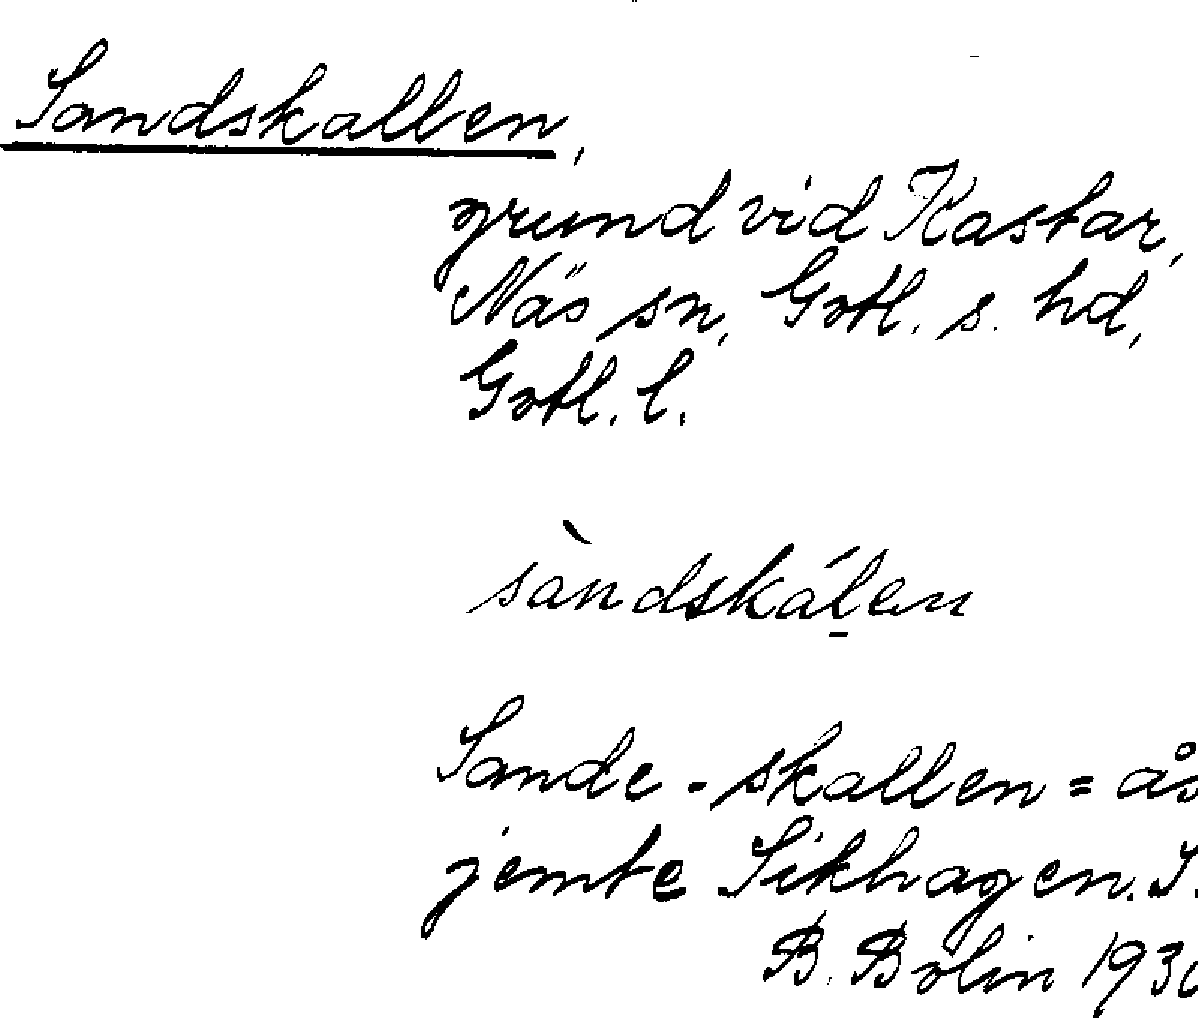 Sandskallen,
grund vid Kastar,
Näs sn, Gotl. s. hd,
Gotl. l.
sàndskáḻen
Sande-skallen = ås
jemte Sikhagen. S.
B. Bolin 193